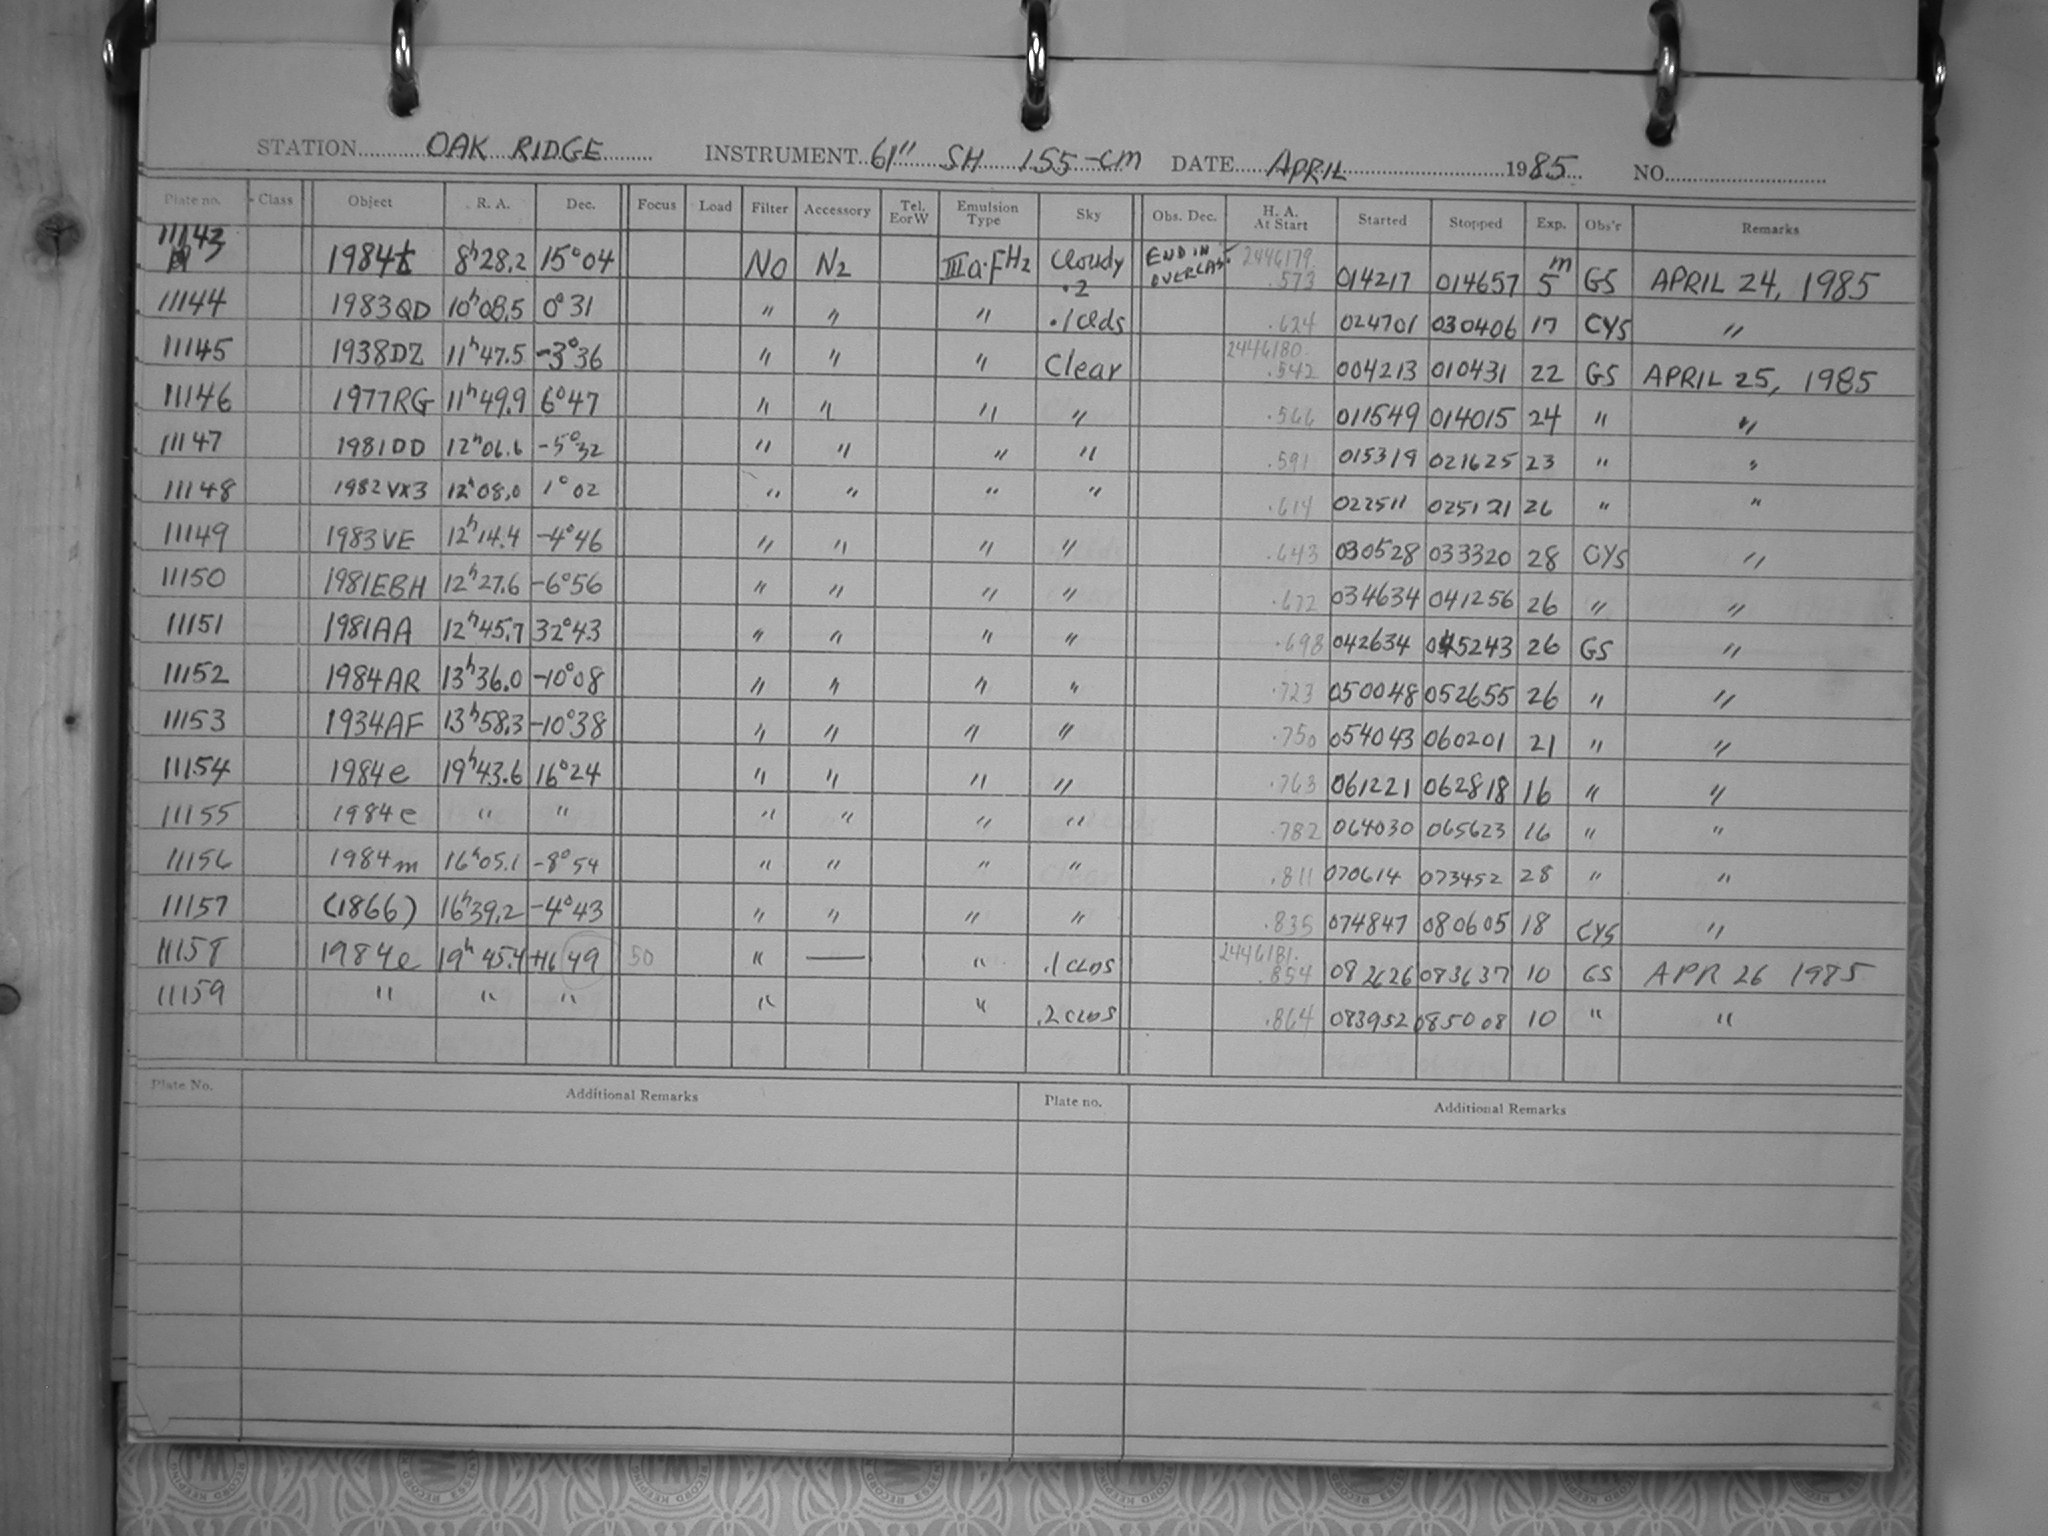 STATION OAK RIDGE INSTRUMENT 61" SH 155-cm DATE APRIL 1985 NO.
Plate no. Class Object R. A. Dec. Focus Load Filter Accessory Tel. E or W Emulsion Type Sky Obs. Dec. H. A. At Start Started Stopped Exp. Obs'r Remarks
11143 1984t 8h28.2 15°04 NO N2 IIIa-FH2 Cloudy .2 END IN OVERCAST 2446179. .573 014217 014657 5m GS APRIL 24, 1985
11144 1983QD 10h08.5 0°31 " " " .1clds .624 024701 030406 17 CYS "
11145 1938DZ 11h47.5 -3°36 " " " Clear 2446180. .542 004213 010431 22 GS APRIL 25, 1985
11146 1977RG 11h49.9 6°47 " " " " .566 011549 014015 24 " "
11147 1981DD 12h06.6 -5°32 " " " " .591 015319 021625 23 " "
11148 1982VX3 12h08.0 1°02 " " " " .614 022511 025121 26 " "
11149 1983VE 12h14.4 -4°46 " " " " .643 030528 033320 28 CYS "
11150 1981EBH 12h27.6 -6°56 " " " " .672 034634 041256 26 " "
11151 1981AA 12h45.7 32°43 " " " " .698 042634 045243 26 GS "
11152 1984AR 13h36.0 -10°08 " " " " .723 050048 052655 26 " "
11153 1934AF 13h58.3 -10°38 " " " " .750 054043 060201 21 " "
11154 1984e 19h43.6 16°24 " " " " .763 061221 062818 16 " "
11155 1984e " " " " " " .782 064030 065623 16 " "
11156 1984m 16h05.1 -8°54 " " " " .811 070614 073452 28 " "
11157 (1866) 16h39.2 -4°43 " " " " .835 074847 080605 18 CYS "
11158 1984e 19h 45.4 +16 49 50 " — " .1 CLDS 2446181. .854 082626 083637 10 GS APR 26 1985
11159 " " " " " .2 CLDS .864 083952 085008 10 " "
Plate No. Additional Remarks Plate no. Additional Remarks